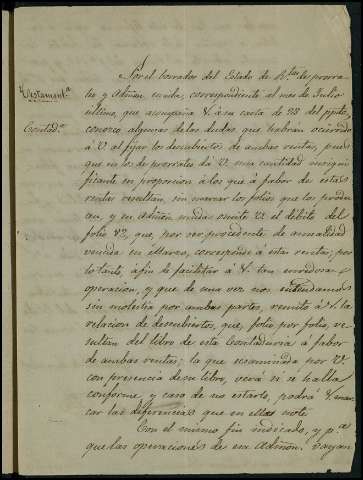 Por el borrador del Estado de
y Admón unida, correspondiente al mes de Julio
Testament.ª
último, que acompaña V. á su carta de 28 del ppdo,
Contad.ª
conozco algunas de las dudas que habrán ocurrido
á V. al fijar los descubiertos de ambas rentas, pues
que en lo de prorrateo da V. una cantidad insigni-
ficante en proporcion á los que á favor de éstas
rentas resultan, sin marcar los folios que los produ-
cen, y en Admón unidas omite V. el débito del
folio 82, que, por ser procedente de anualidad
vencida en Marzo, corresponde á estas rentas; por
lo tanto, á fin de facilitar á V. tan enredosa
operacion, y que de una vez nos entendamos
sin molestia por ambas partes, remito á V. la
relacion de descubiertos, que, folio por folio, re-
sultan del libro de esta Contaduria á favor
de ambas rentas; la que ecsaminada por V.
con presencia de su libro, verá si se halla
conforme, y caso de no estarlo, podrá V. mar-
car las diferencias que en ellas note
Con el mismo fin indicado, y p.ª
que las operaciones de esa Admón. vayan